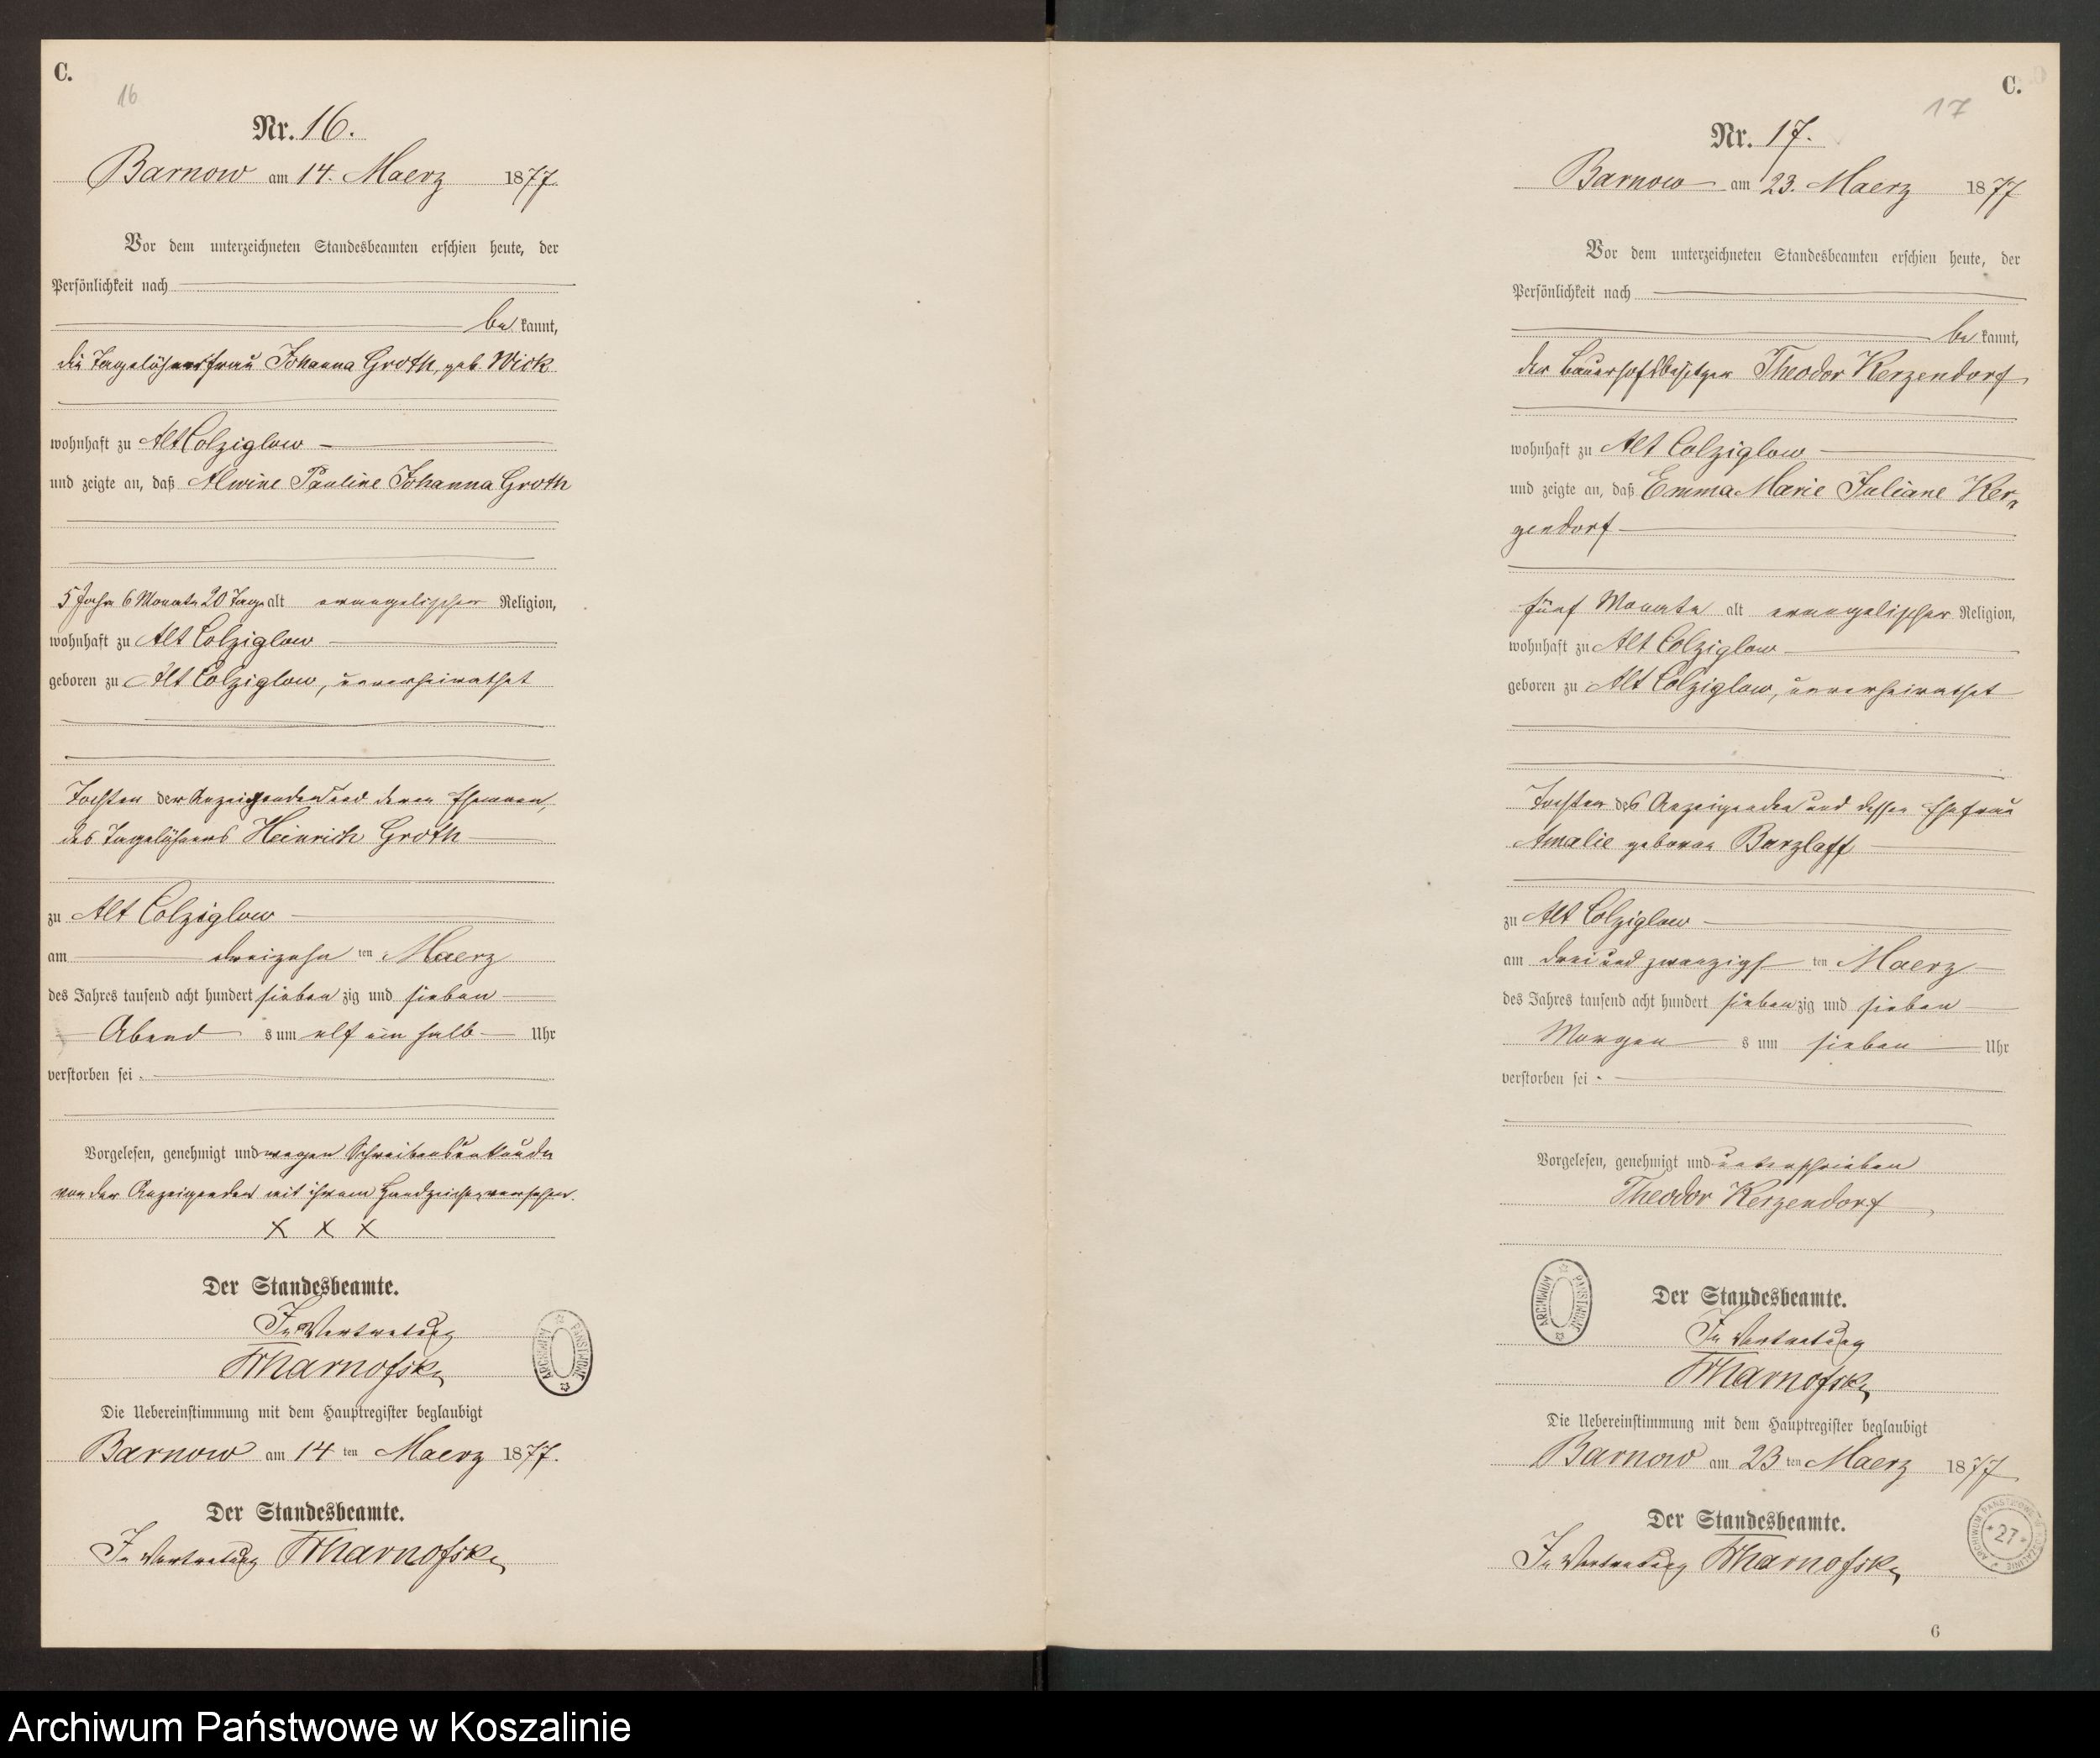 C.
16
Nr. 16.
Barnow am 14. Maerz 1877.
Vor dem unterzeichneten Standesbeamten erschien heute, der
Persönlichkeit nach
be kannt,
die Tagelöhnerfrau Johanna Groth, geb. Wick
wohnhaft zu Alt Colziglow
und zeigte an, daß Alwine Pauline Johanna Groth
5 Jahr 6 Monate 20 Tage alt evangelischer Religion,
wohnhaft zu Alt Colziglow
geboren zu Alt Colziglow, unverheirathet
Tochter der Anzeigenden und deren Ehemann,
des Tagelöhners Heinrich Groth
zu Alt Colziglow
am dreizehn ten Maerz
des Jahres tausend acht hundert sieben zig und sieben
Abend s um elf ein halb Uhr
verstorben sei.
Vorgelesen, genehmigt und wegen Schreibensunkunde
von der Anzeigenden mit ihrem Handzeichen versehen.
X X X
Der Standesbeamte.
In Vertretung
Die Uebereinstimmung mit dem Hauptregister beglaubigt
Barnow am 14 ten Maerz 1877.
Der Standesbeamte.
In Vertretung
ARCHIWUM PAŃSTWOWE
C.
17
Nr. 17.
Barnow am 23. Maerz 1877
Vor dem unterzeichneten Standesbeamten erschien heute, der
Persönlichkeit nach
be kannt,
der Bauerhofsbesitzer Theodor Kerzendorf
wohnhaft zu Alt Colziglow
und zeigte an, daß Emma Marie Juliane Ker-
zendorf
fünf Monate alt evangelischer Religion,
wohnhaft zu Alt Colziglow
geboren zu Alt Colziglow, unverheirathet
Tochter des Anzeigenden und dessen Ehefrau
Amalie geboren Barzlaff
zu Alt Colziglow
am drei und zwanzigs ten Maerz
des Jahres tausend acht hundert sieben zig und sieben
Morgen s um sieben Uhr
verstorben sei.
Vorgelesen, genehmigt und unterschrieben
Theodor Kerzendorf
ARCHIWUM PAŃSTWOWE
Der Standesbeamte.
In Vertretung
Die Uebereinstimmung mit dem Hauptregister beglaubigt
Barnow am 23 ten Maerz 1877
Der Standesbeamte.
In Vertretung
ARCHIWUM PAŃSTWOWE W KOSZALINIE
* 27 *
6
Archiwum Państwowe w Koszalinie